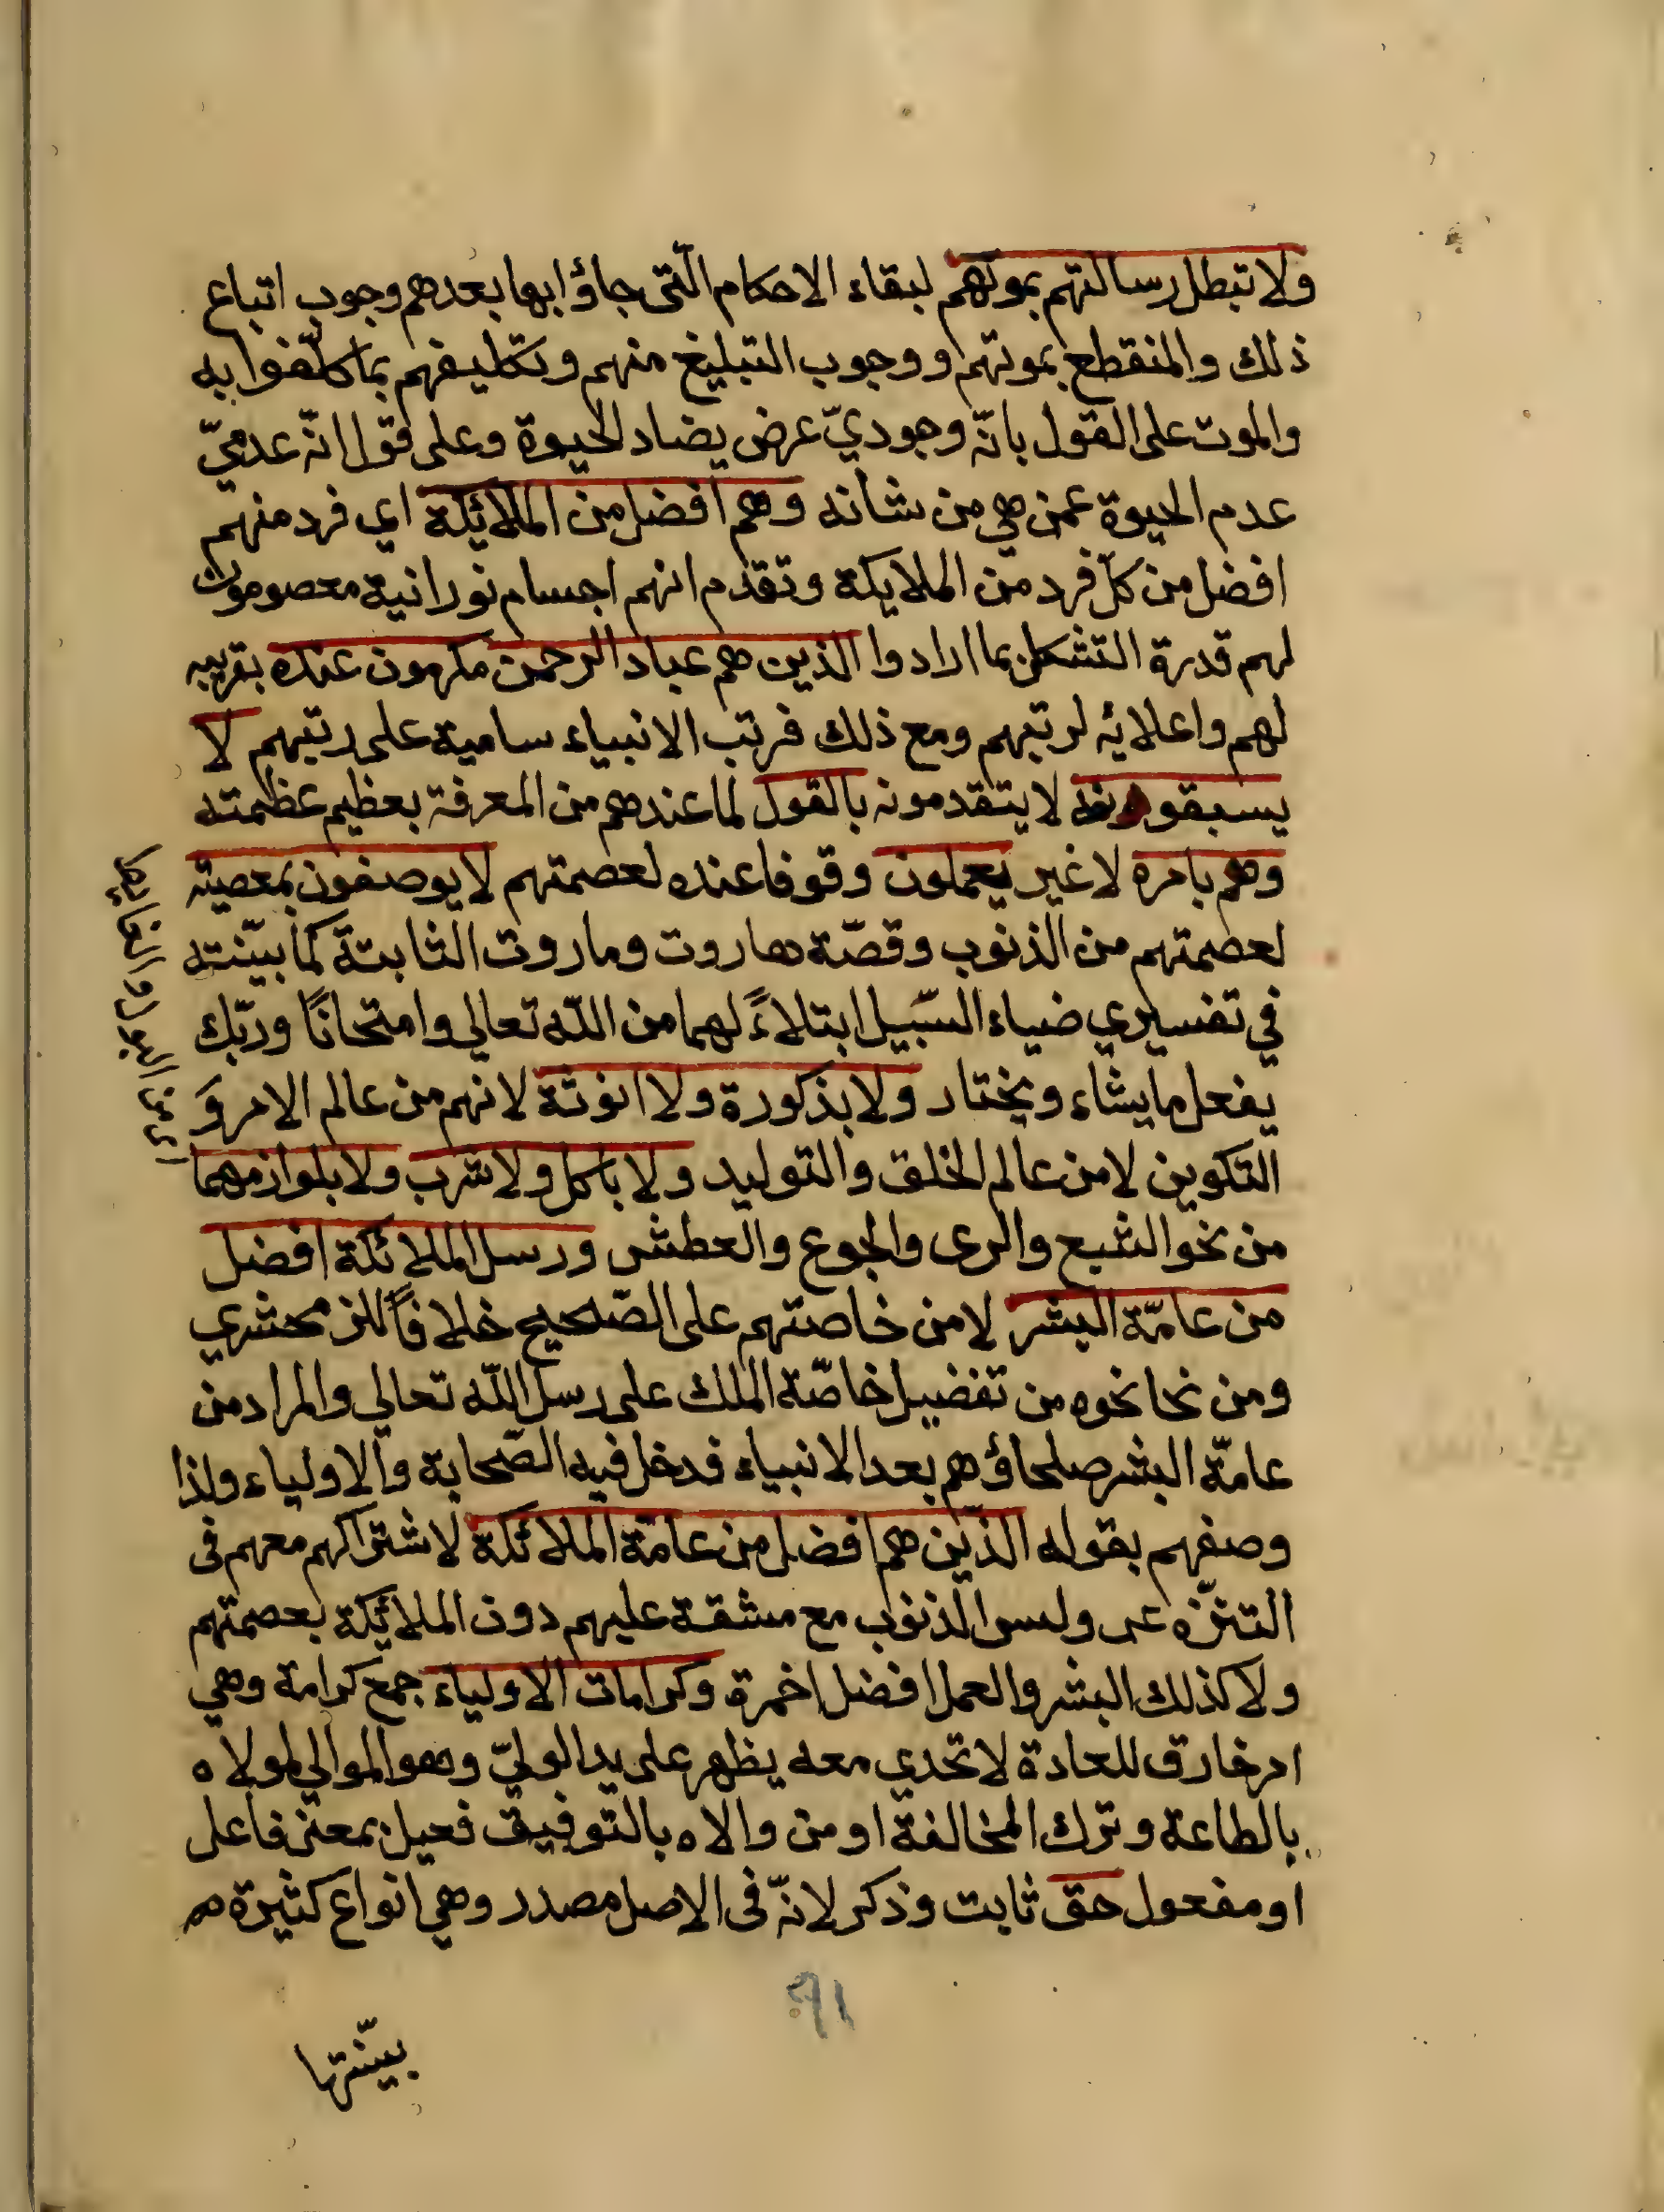 ولا تبطل رسالتهم بموتهم لبقاء الاحكام الّتى جاؤا بها بعدهم وجوب اتباع
ذلك والمنقطع بموتهم ووجوب التبليغ منهم وتكليفهم بما كلّفوا به
والموت على القول بانّه وجوديّ عرض يضاد الحيوة وعلى قول انّه عدميّ
عدم الحيوة عمن هي من شانه وهم افضل من الملائكة اي فرد منهم
افضل من كلّ فرد من الملايكة وتقدم انهم اجسام نورانية معصومون
لهم قدرة التشكل بما ارادوا الذين هم عباد الرحمن مكرمون عنده بقربه
لهم واعلائه لرتبهم ومع ذلك فرتب الانبياء سامية على رتبهم لا
يسبقونه لا يتقدمونه بالقول لما عندهم من المعرفة بعظيم عظمته
وهم بامره لا غير يعملون وقوفا عنده لعصمتهم لا يوصفون بمعصيته
لعصمتهم من الذنوب وقصّة هاروت وماروت الثابتة كما بيّنته
في تفسيري ضياء السّبيل ابتلاءً لهما من اللّه تعالي وامتحانًا وربّك
يفعل ما يشاء ويختار ولا بذكورة ولا انوثة لانهم من عالم الامر وَ
التكوين لا من عالم الخلق والتوليد ولا باكل ولا شرب ولا بلوازمهما
من نحو الشبع والرى والجوع والعطش ورسل الملائكة افضل
من عامّة البشر لا من خاصتهم على الصّحيح خلافًا للزمحشري
ومن نحا نحوه من تفضيل خاصّة الملك على رسل اللّه تعالي والمراد من
عامّة البشر صلحاؤهم بعد الانبياء فدخل فيه الصّحابة والاولياء ولذا
وصفهم بقوله الذّين هم افضل من عامّة الملائكة لاشتراكهم معهم فى
التنزّه عن الذنوب مع مشقة عليهم دون الملائكة بعصمتهم
ولا كذلك البشر والعمل افضل احمزة وكرامات الاولياء جمع كرامة وهي
امر خارق للعادة لا تحدي معه يظهر على يد الوليّ وهو الموالي لمولاه
بالطاعة وترك المخالفة او من والاه بالتوفيق فعيل بمعنى فاعل
او مفعول حق ثابت وذكر لانّه فى الاصل مصدر وهي انواع كثيرة
٩١
بيّنتها